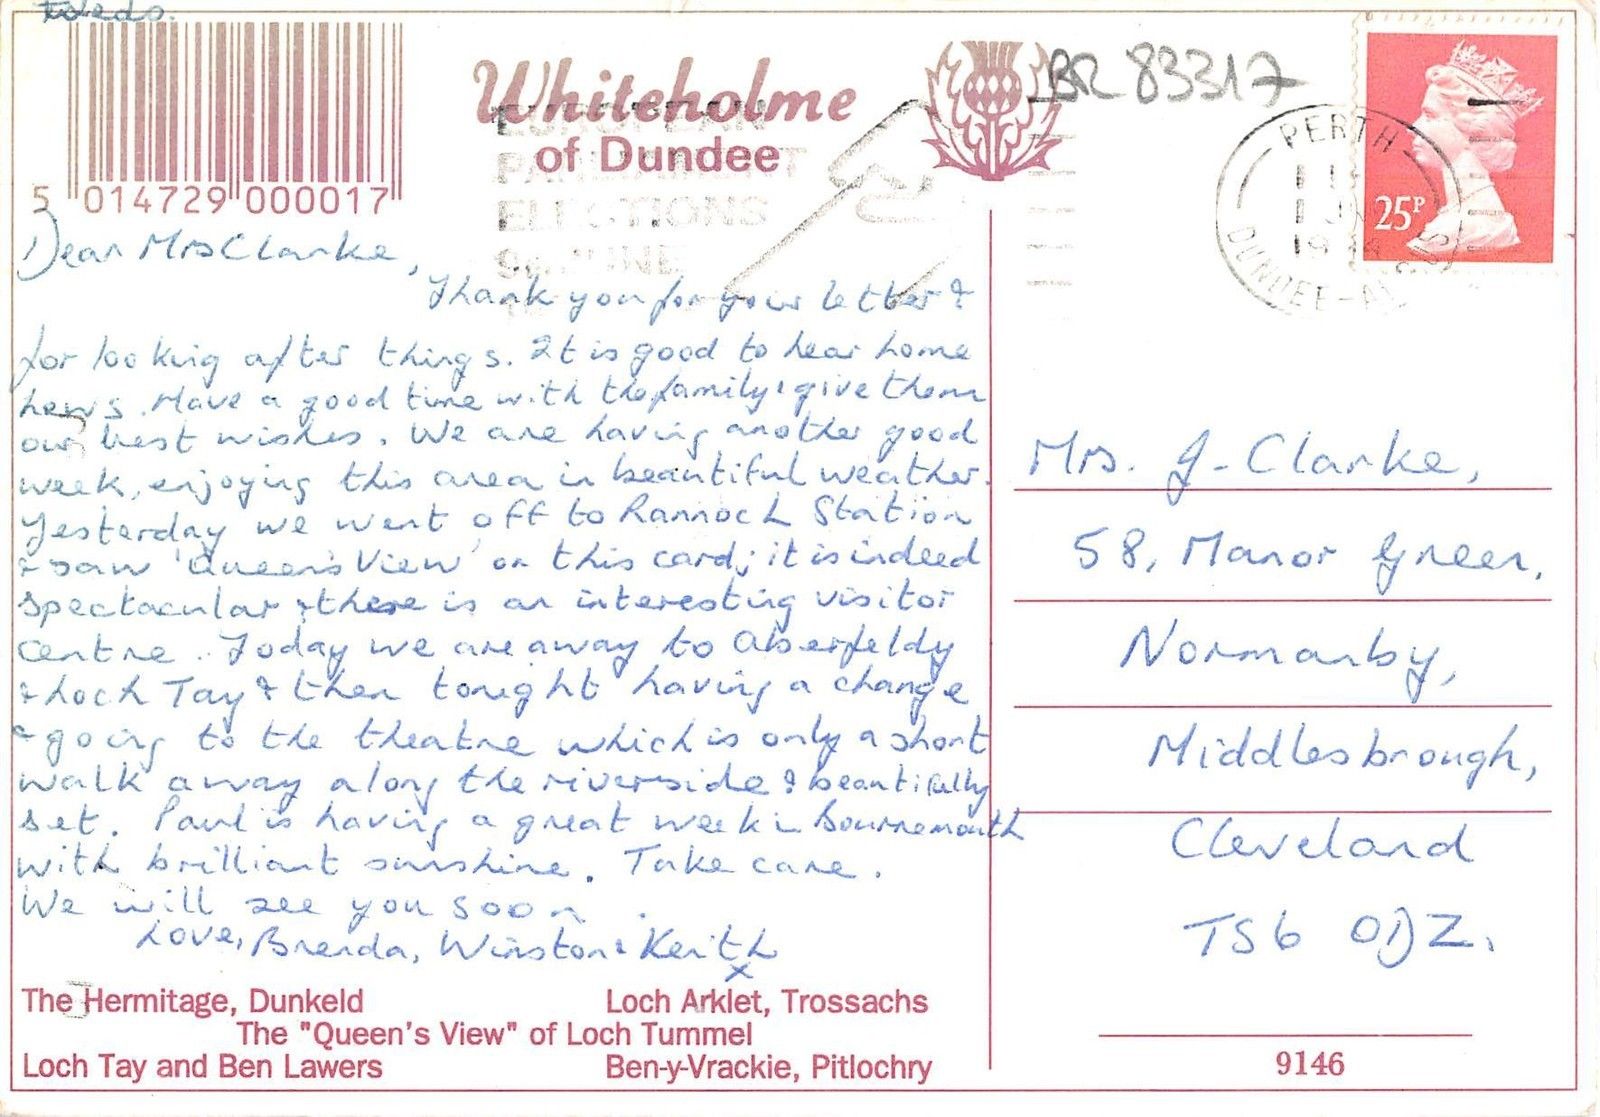 Toledo.
Whiteholme
of Dundee
BR 83317
5 014729 000017
EUROPEAN
PARLIAMENT
ELECTIONS
9 JUNE
PERTH
DUNDEE-
25P
Dear Mrs Clarke,
Thank you for your letter &
for looking after things. It is good to hear home
news. Have a good time with the family & give them
our best wishes. We are having another good
week, enjoying this area in beautiful weather.
Yesterday we went off to Rannoch Station
& saw 'Queen's View' on this card; it is indeed
spectacular & there is an interesting visitor
centre. Today we are away to Aberfeldy
& Loch Tay & then tonight having a change
& going to the theatre which is only a short
walk away along the riverside & beautifully
set. Paul is having a great week in Bournemouth
with brilliant sunshine. Take care.
We will see you soon.
Love, Brenda, Winston & Keith
x
Mrs. J. Clarke,
58, Manor Green,
Normanby,
Middlesbrough,
Cleveland
TS6 0DZ.
The Hermitage, Dunkeld Loch Arklet, Trossachs
The "Queen's View" of Loch Tummel
Loch Tay and Ben Lawers Ben-y-Vrackie, Pitlochry
9146